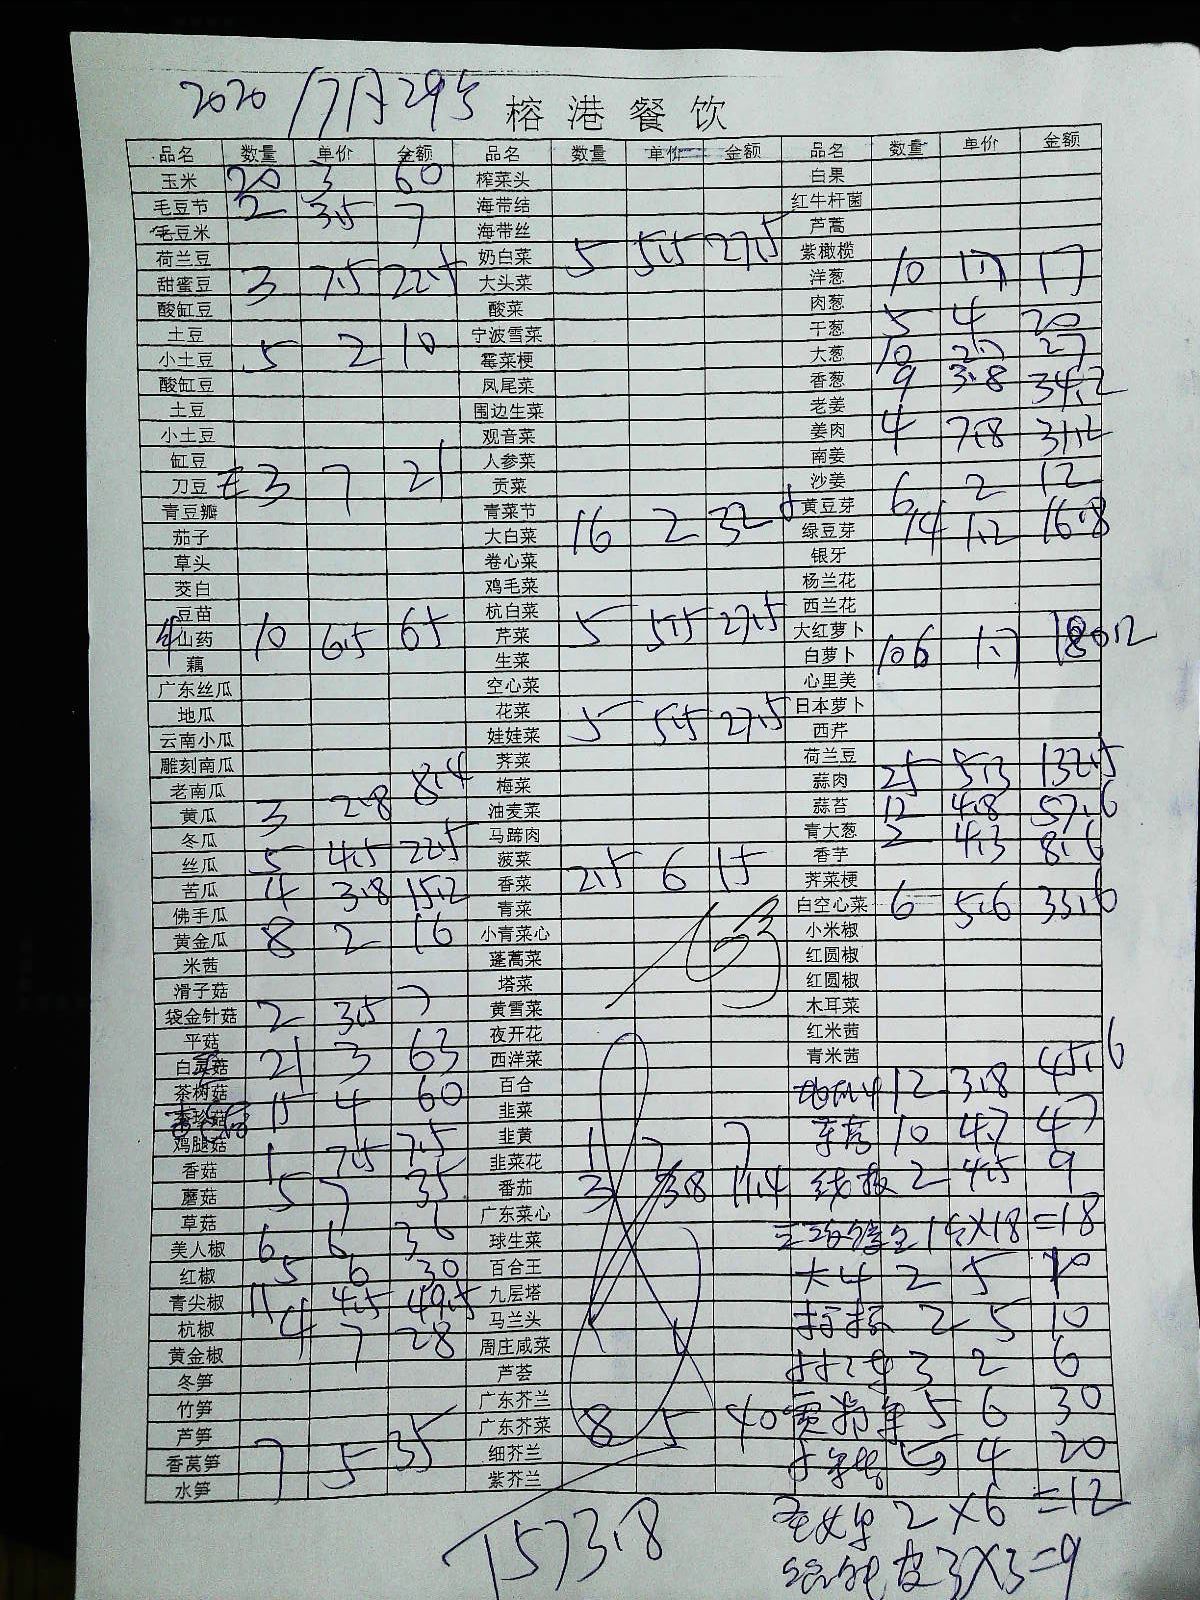 2020 17月29号
榕港餐饮
品名 数量 单价 金额 品名 数量 单价 金额 品名 数量 单价 金额
玉米 20 3 60 榨菜头 白果
毛豆节 2 3.5 7 海带结 红牛杆菌
毛豆米 海带丝 芦蒿
荷兰豆 奶白菜 5 5.5 27.5 紫橄榄
甜蜜豆 3 7.5 22.5 大头菜 洋葱 10 1.7 17
酸缸豆 酸菜 肉葱
土豆 宁波雪菜 干葱 5 4 20
小土豆 5 2 10 霉菜梗 大葱 10 2.7 27
酸缸豆 凤尾菜 香葱 9 3.8 34.2
土豆 围边生菜 老姜
小土豆 观音菜 姜肉 4 7.8 31.2
缸豆 人参菜 南姜
刀豆 3 7 21 贡菜 沙姜 6 2 12
青豆瓣 青菜节 黄豆芽
茄子 大白菜 16 2 32 绿豆芽 14 1.2 16.8
草头 卷心菜 银牙
茭白 鸡毛菜 杨兰花
豆苗 杭白菜 西兰花
山药 10 6.5 65 芹菜 5 5.5 27.5 大红萝卜
藕 生菜 白萝卜 106 1.7 180.2
广东丝瓜 空心菜 心里美
地瓜 花菜 日本萝卜
云南小瓜 娃娃菜 5 5.5 27.5 西芹
雕刻南瓜 荠菜 荷兰豆
老南瓜 梅菜 蒜肉 25 5.3 132.5
黄瓜 3 2.8 8.4 油麦菜 蒜苔 12 4.8 57.6
冬瓜 马蹄肉 青大葱 2 4.3 8.6
丝瓜 5 4.5 22.5 菠菜 香芋
苦瓜 4 3.8 15.2 香菜 2.5 6 15 荠菜梗
佛手瓜 青菜 白空心菜 6 5.6 33.6
黄金瓜 8 2 16 小青菜心 小米椒
米茜 蓬蒿菜 红圆椒
滑子菇 塔菜 红圆椒
袋金针菇 2 3.5 7 黄雪菜 木耳菜
平菇 夜开花 红米茜
白灵菇 21 3 63 西洋菜 青米茜
茶树菇 百合 12 3.8 45.6
秀珍菇 15 4 60 韭菜
鸡腿菇 韭黄 1 7 7 10 4.7 47
香菇 1 7.5 7.5 韭菜花
蘑菇 5 7 35 番茄 3 3.8 11.4 线椒 2 4.5 9
草菇 广东菜心
美人椒 6 6 36 球生菜 ×18=18
红椒 5 6 30 百合王 大 4 2 5 10
青尖椒 11 4.5 49.5 九层塔
杭椒 4 7 28 马兰头 2 5 10
黄金椒 周庄咸菜
冬笋 芦荟 3 2 6
竹笋 广东芥兰
芦笋 广东芥菜 8 5 40 5 6 30
香莴笋 7 5 35 细芥兰 5 4 20
水笋 紫芥兰
圣女果 2×6=12
1573.8
皮 3×3=9